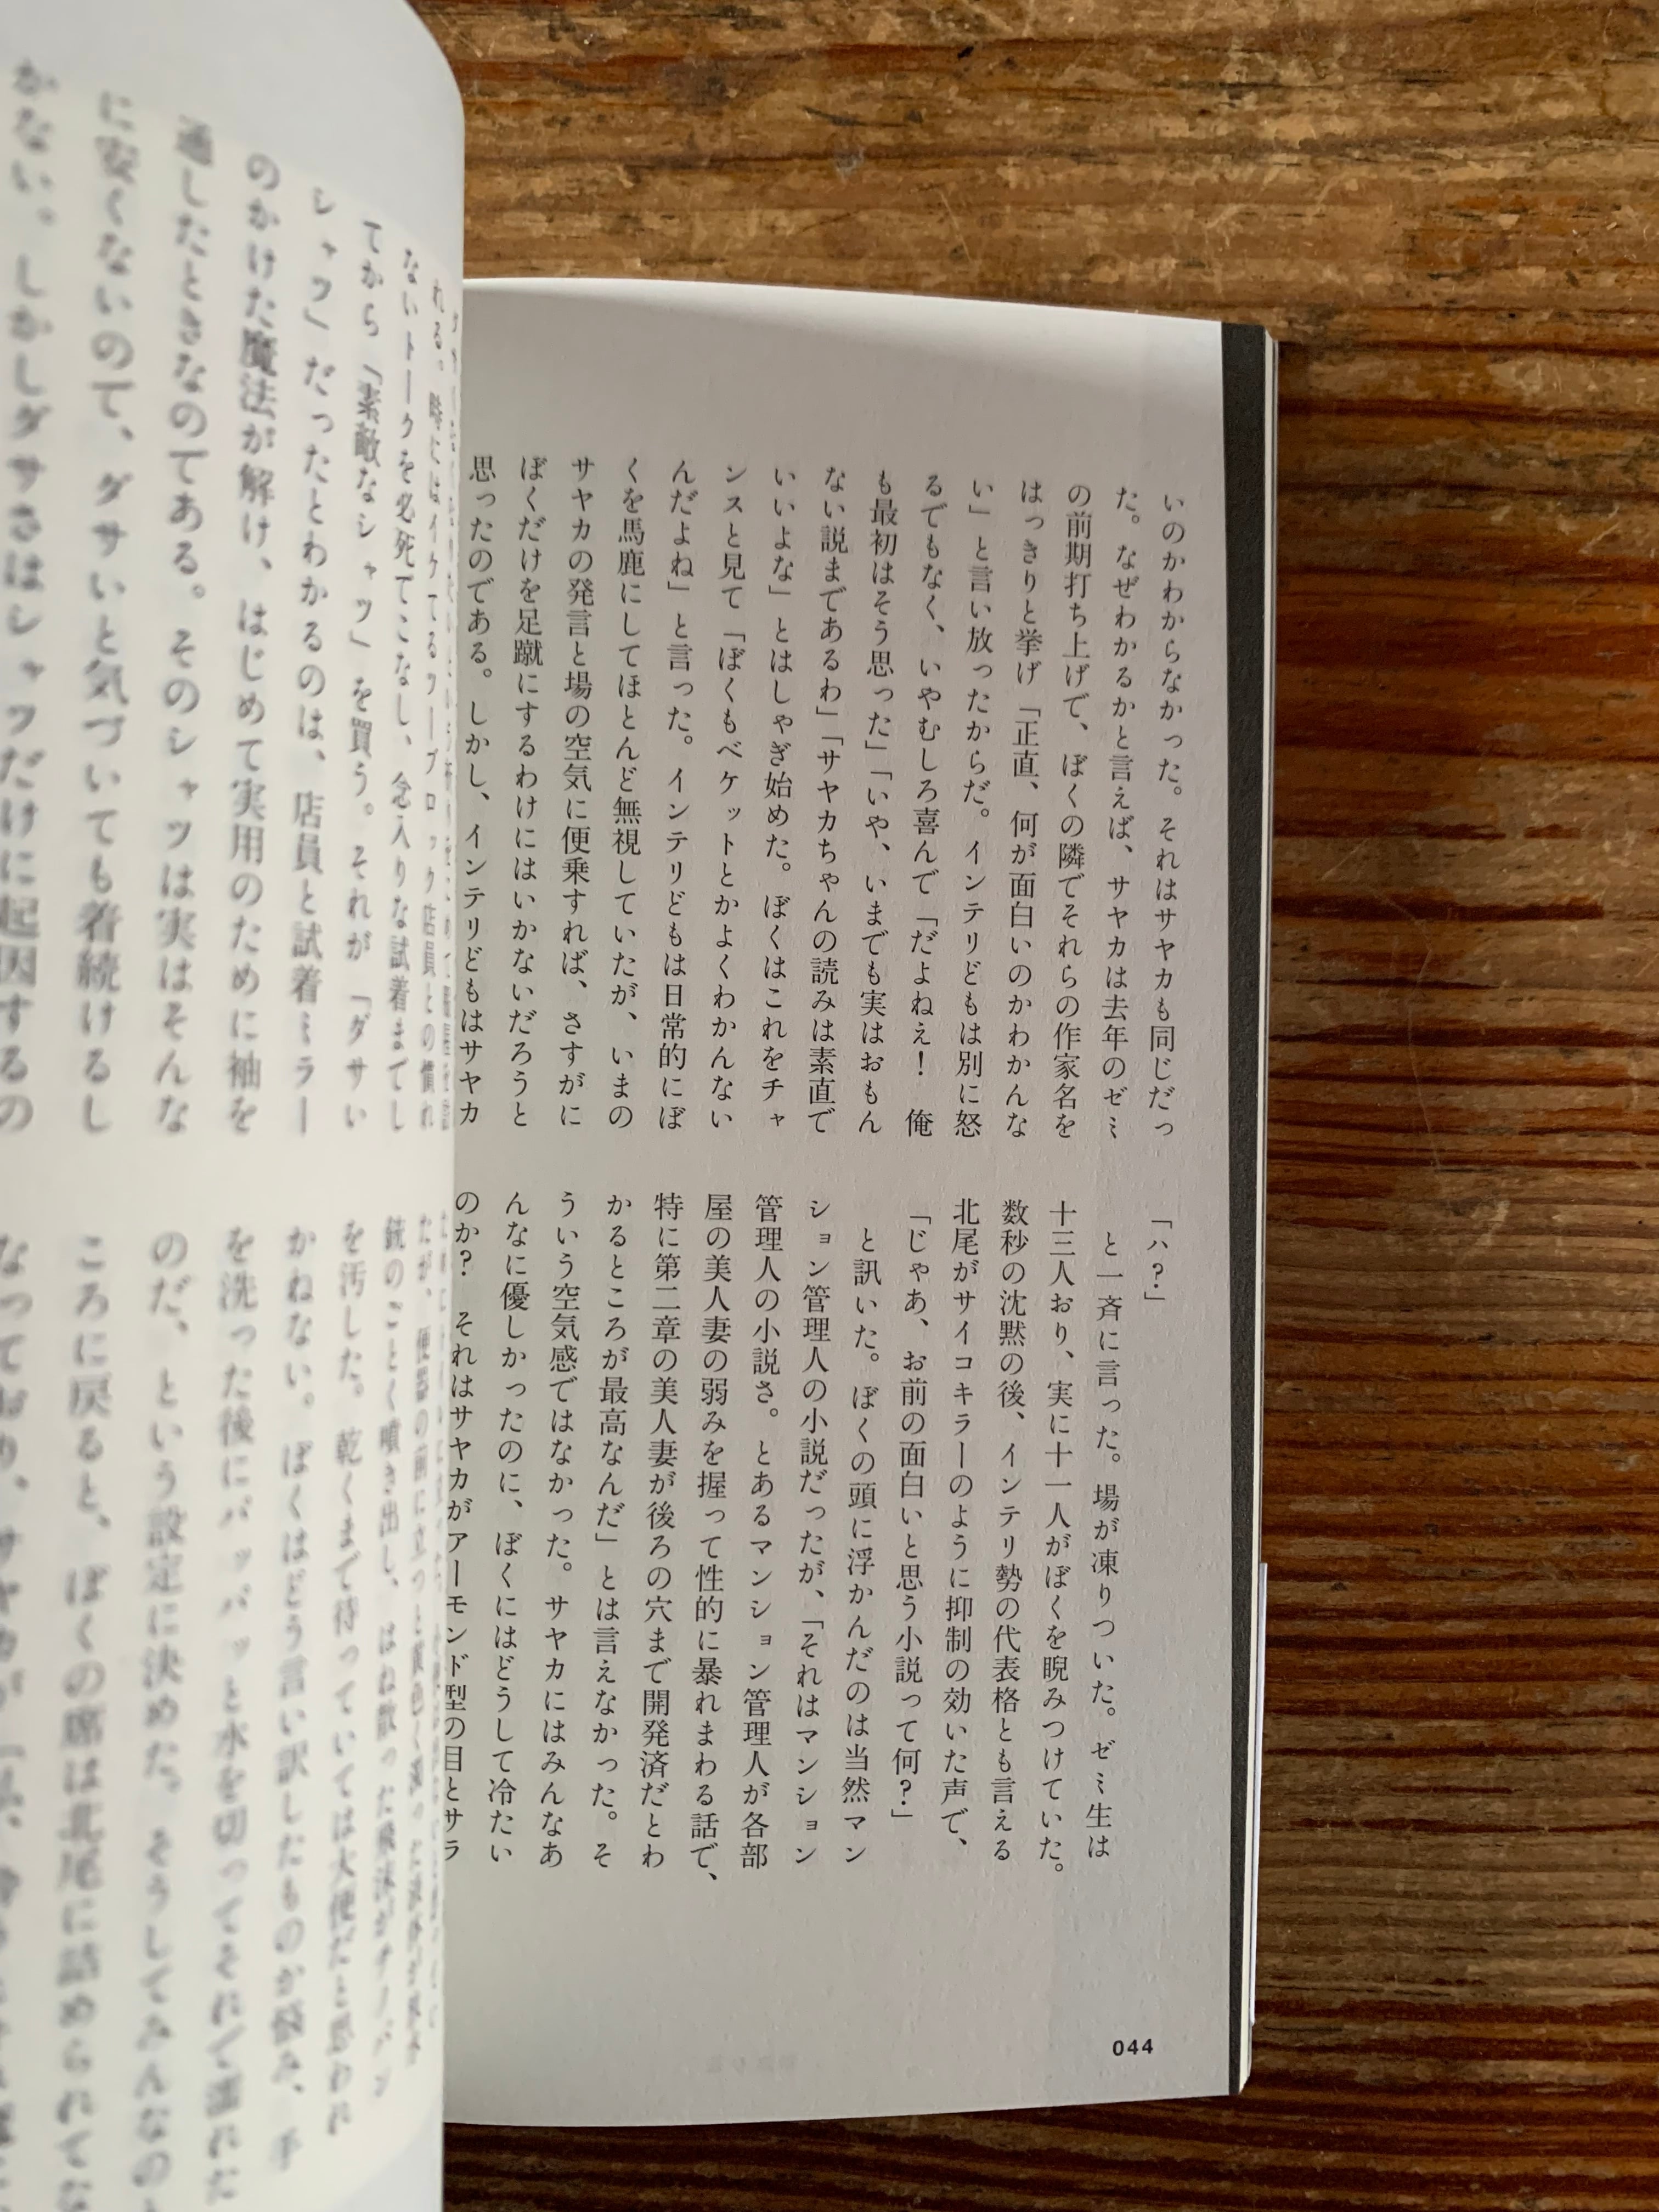 いのかわからなかった。それはサヤカも同じだっ
た。なぜわかるかと言えば、サヤカは去年のゼミ
の前期打ち上げで、ぼくの隣でそれらの作家名を
はっきりと挙げ「正直、何が面白いのかわかんな
い」と言い放ったからだ。インテリどもは別に怒
るでもなく、いやむしろ喜んで「だよねえ！　俺
も最初はそう思った」「いや、いまでも実はおもん
ない説まであるわ」「サヤカちゃんの読みは素直で
いいよな」とはしゃぎ始めた。ぼくはこれをチャ
ンスと見て「ぼくもベケットとかよくわかんない
んだよね」と言った。インテリどもは日常的にぼ
くを馬鹿にしてほとんど無視していたが、いまの
サヤカの発言と場の空気に便乗すれば、さすがに
ぼくだけを足蹴にするわけにはいかないだろうと
思ったのである。しかし、インテリどもはサヤカ
「ハ？」
と一斉に言った。場が凍りついた。ゼミ生は
十三人おり、実に十一人がぼくを睨みつけていた。
数秒の沈黙の後、インテリ勢の代表格とも言える
北尾がサイコキラーのように抑制の効いた声で、
「じゃあ、お前の面白いと思う小説って何？」
と訊いた。ぼくの頭に浮かんだのは当然マン
ション管理人の小説だったが、「それはマンション
管理人の小説さ。とあるマンション管理人が各部
屋の美人妻の弱みを握って性的に暴れまわる話で、
特に第二章の美人妻が後ろの穴まで開発済だとわ
かるところが最高なんだ」とは言えなかった。そ
ういう空気感ではなかった。サヤカにはみんなあ
んなに優しかったのに、ぼくにはどうして冷たい
のか？　それはサヤカがアーモンド型の目とサラ
044
ないトークを必死でこなし、念入りな試着までし
てから「素敵なシャツ」を買う。それが「ダサい
シャツ」だったとわかるのは、店員と試着ミラー
のかけた魔法が解け、はじめて実用のために袖を
通したときなのである。そのシャツは実はそんな
に安くないので、ダサいと気づいても着続けるし
かない。しかしダサさはシャツだけに起因するの
を汚した。乾くまで待っていては大便だと思われ
かねない。ぼくはどう言い訳したものか悩み、手
を洗った後にパッパッと水を切ってそれで濡れた
のだ、という設定に決めた。そうしてみんなのと
ころに戻ると、ぼくの席は北尾に詰められてな